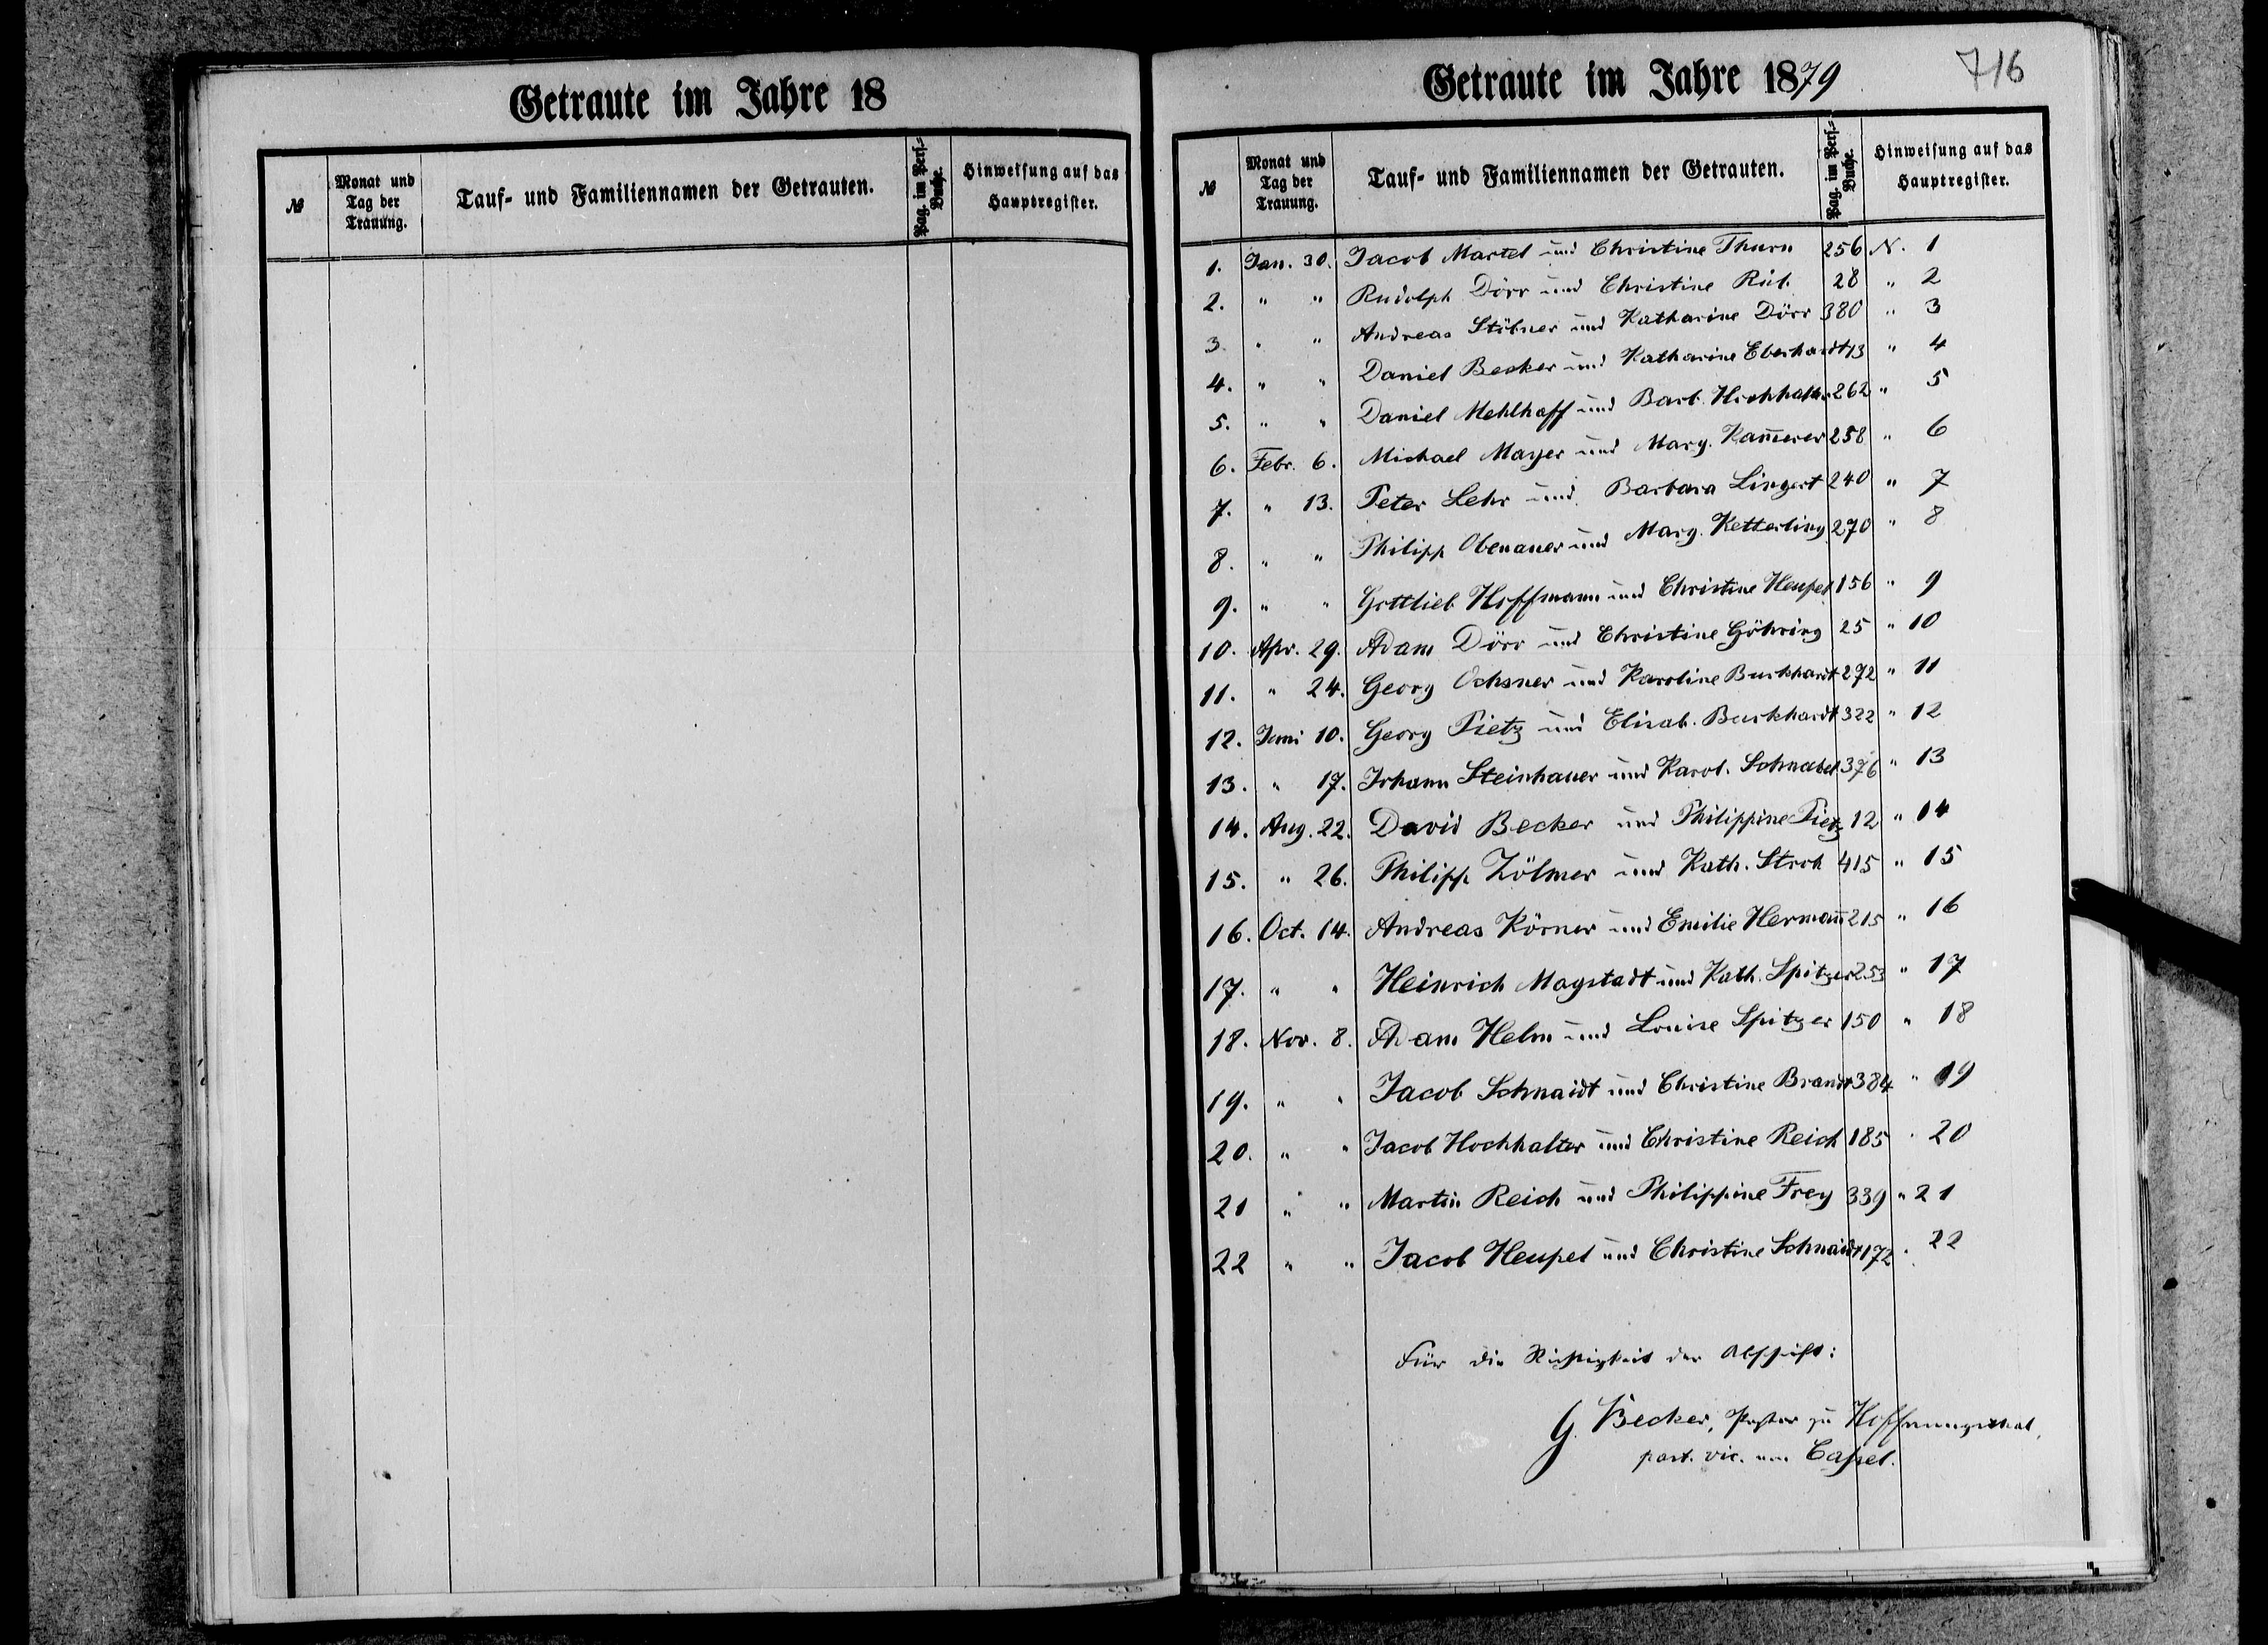 Getraute im Jahre 18
№ Monat und Tag der Trauung. Tauf- und Familiennamen der Getrauten. Pag. im Pers.-Buche. Hinweisung auf das Hauptregister.
716
Getraute im Jahre 1879
№ Monat und Tag der Trauung. Tauf- und Familiennamen der Getrauten. Pag. im Pers.-Buche. Hinweisung auf das Hauptregister.
1. Jan. 30. Jacob Martel und Christine Thurn 256 N. 1
2. " " Rudolph Dörr und Christine Rüb 28 " 2
3. " " Andreas Stöbner und Katharine Dörr 380 " 3
4. " " Daniel Becker und Katharine Eberhardt 13 " 4
5. " " Daniel Mehlhaff und Barb. Hochhalter 262 " 5
6. Febr. 6. Michael Mayer und Marg. Kam̄erer 258 " 6
7. " 13. Peter Lehr und Barbara Lingert 240 " 7
8. " " Philipp Obenauer und Marg. Ketterling 270 " 8
9. " " Gottlieb Hoffmann und Christine Heupel 156 " 9
10. Apr. 29. Adam Dörr und Christine Göhring 25 " 10
11. " 24. Georg Ochsner und Karoline Burkhardt 292 " 11
12. Juni 10. Georg Pietz und Elisab. Burkhardt 322 " 12
13. " 17. Johann Steinhauer und Karol. Schnabel 376 " 13
14. Aug. 22. David Becker und Philippine Pietz 12 " 14
15. " 26. Philipp Zölmer und Kath. Stroh 415 " 15
16. Oct. 14. Andreas Körner und Emilie Herman̄ 215 " 16
17. " " Heinrich Magstadt und Kath. Spitzer 253 " 17
18. Nov. 8. Adam Helm und Louise Spitzer 150 " 18
19. " " Jacob Schnaidt und Christine Brandt 384 " 19
20. " " Jacob Hochhalter und Christine Reich 185 " 20
21 " " Martin Reich und Philippine Frey 339 " 21
22 " " Jacob Heupel und Christine Schnaidt 172 " 22
Für die Richtigkeit der Abschrift:
G. Becker, Pastor zu Hoffnungsthal,
past. vic. von Cassel.